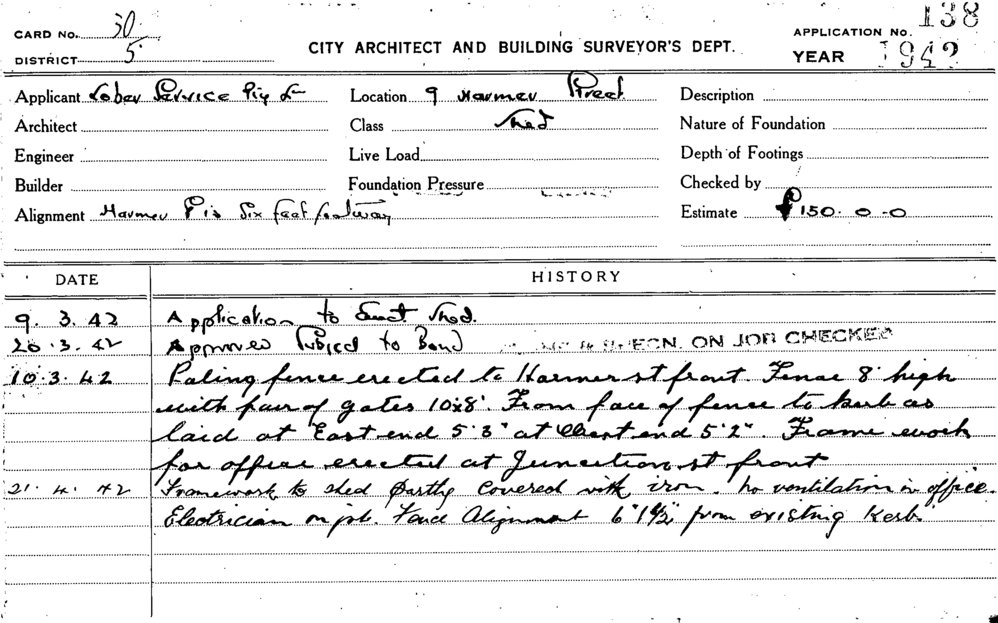 138
CARD No. 30
APPLICATION No.
DISTRICT 5
CITY ARCHITECT AND BUILDING SURVEYOR'S DEPT.
YEAR 1942
Applicant Service Pty
Location 9 Harmer Street
Description
Architect
Class Shed
Nature of Foundation
Engineer
Live Load
Depth of Footings
Builder
Foundation Pressure
Checked by
Alignment Harmer St is Six feet footway
Estimate £150. 0. 0
DATE
HISTORY
9. 3. 42 Application to Erect Shed.
20. 3. 42 Approved Subject to Bond & SPECN. ON JOB CHECKED
10. 3. 42 Paling fence erected to Harmer st front. Fence 8' high
with pair of gates 10'x8'. From face of fence to kerb as
laid at East end 5'3" at West end 5'2". Frame work
for office erected at Junction st front
21. 4. 42 Framework to shed partly covered with iron. No ventilation in office.
Electrician on job. Fence Alignment 6'1½" from existing Kerb.